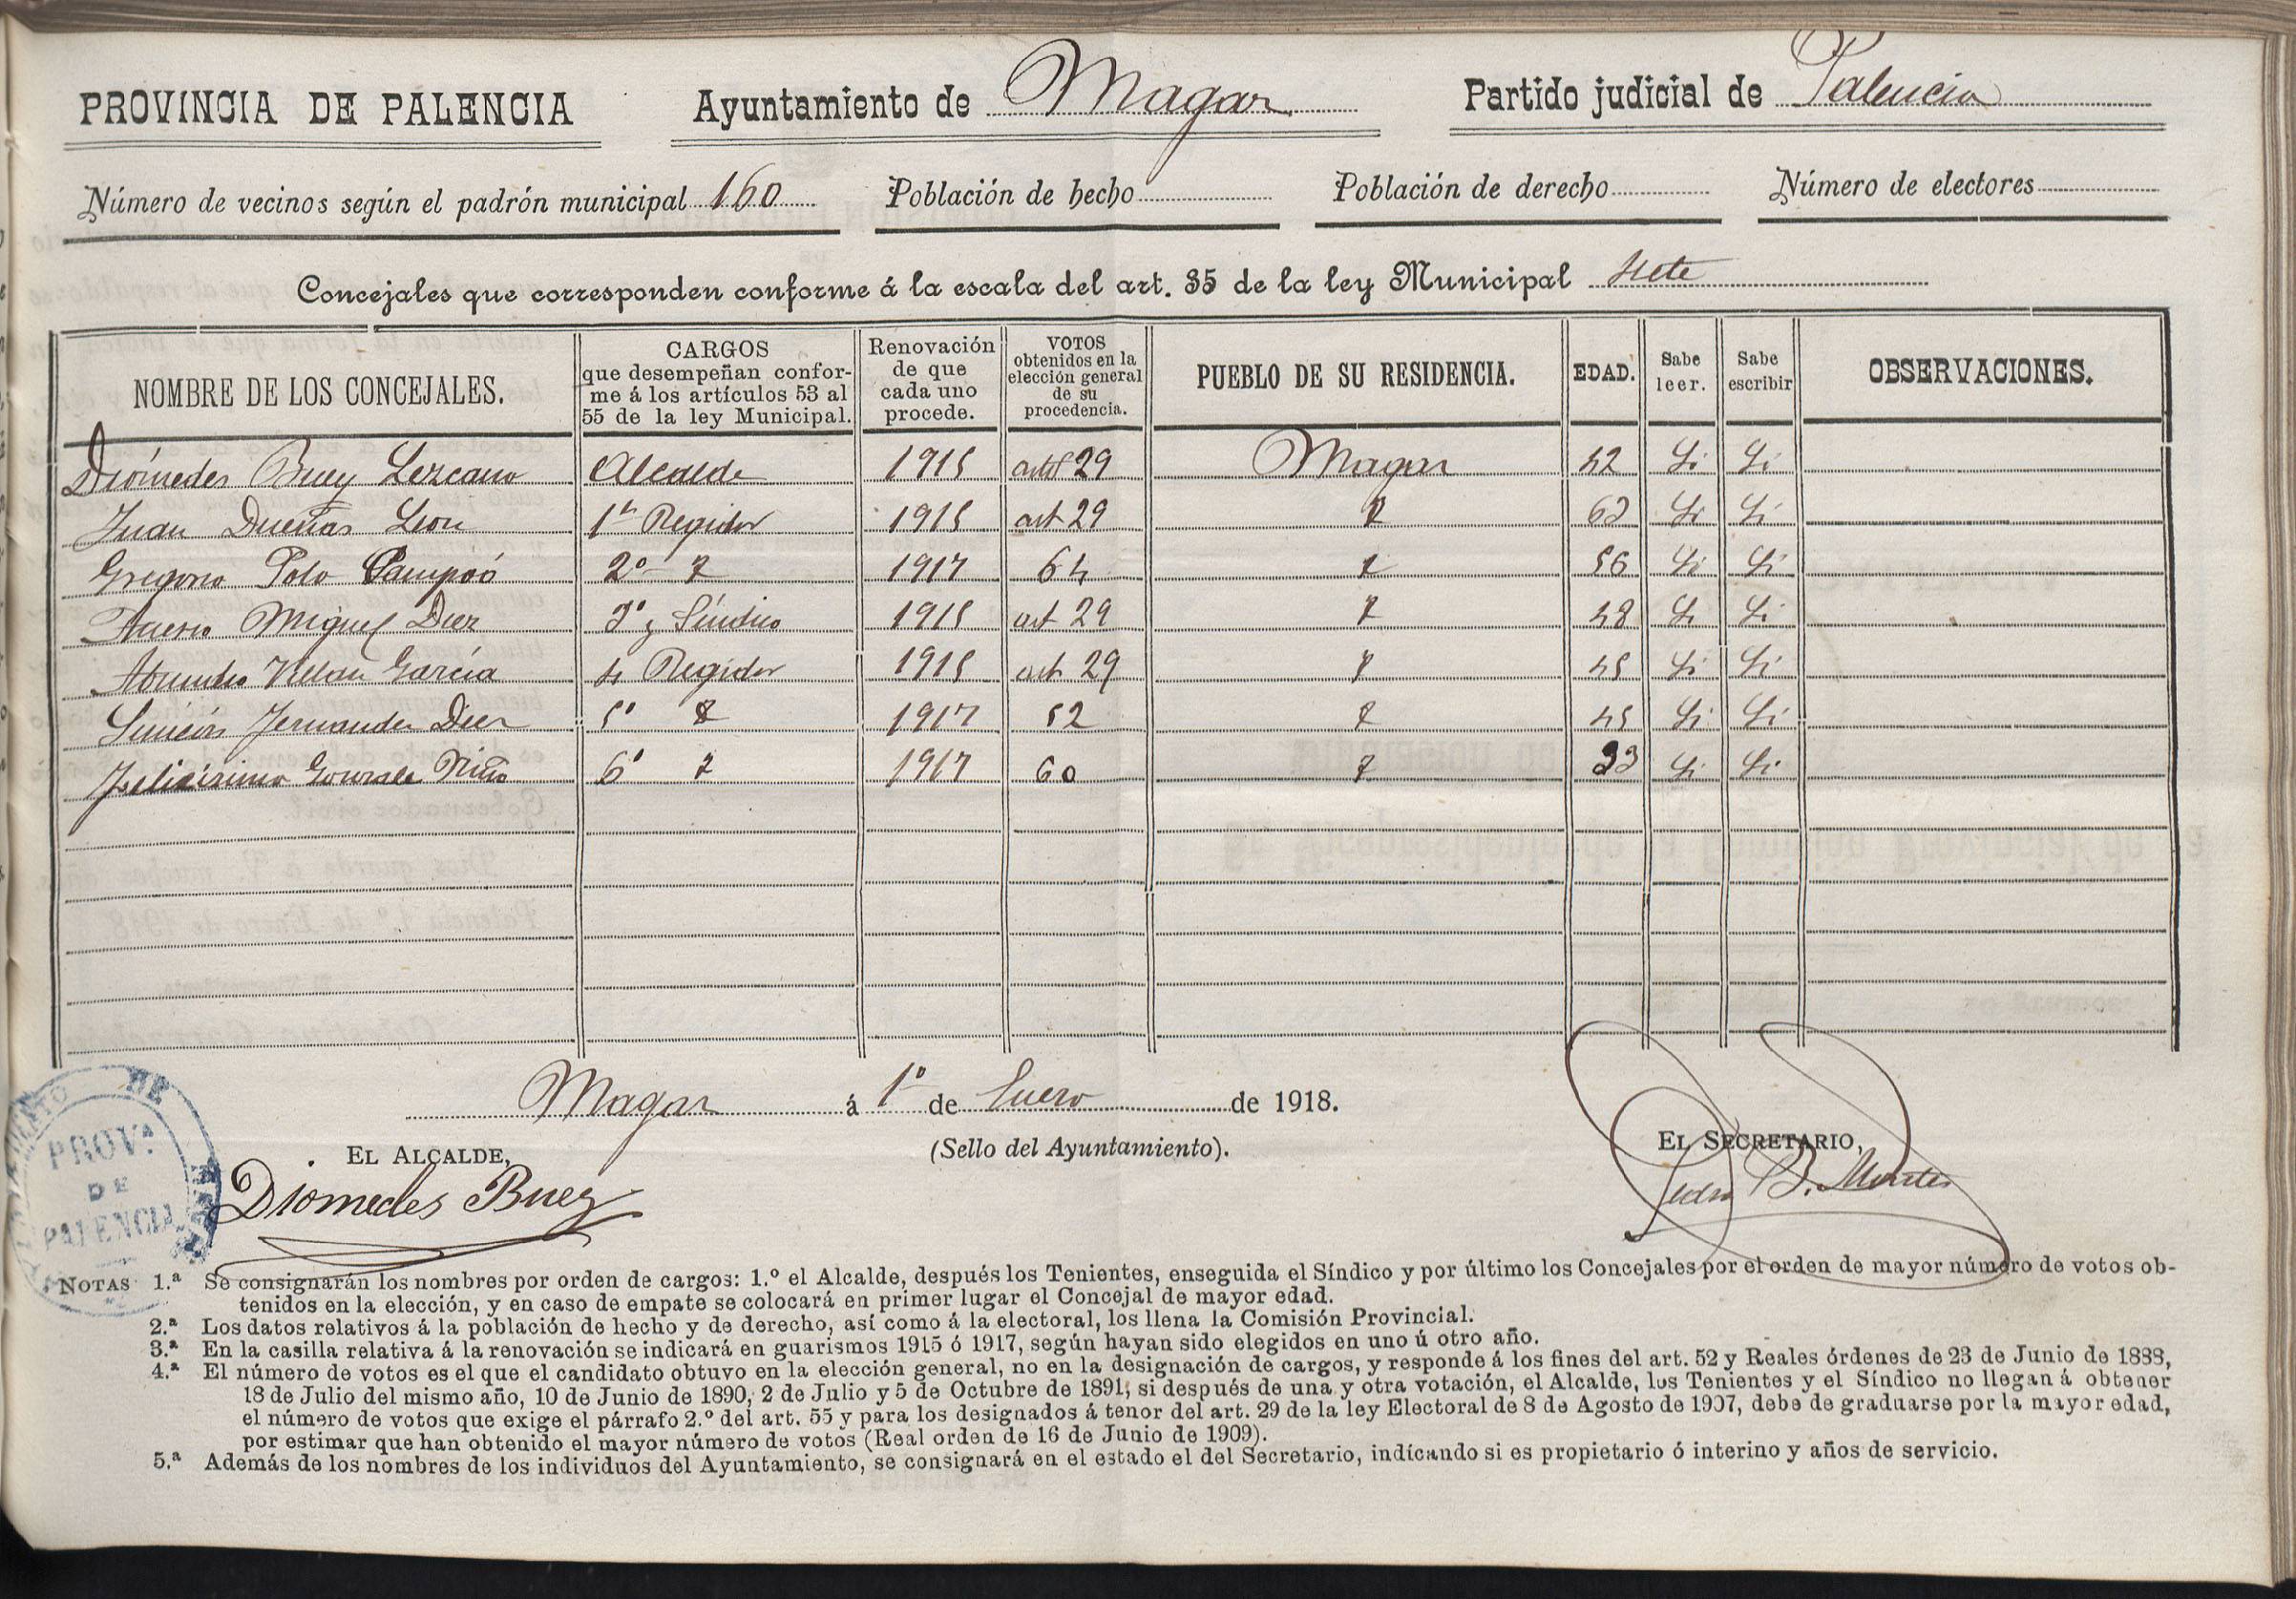 PROVINCIA DE PALENCIA
Ayuntamiento de Magaz
Partido judicial de Palencia
Número de vecinos según el padrón municipal 160 Población de hecho Población de derecho Número de electores
Concejales que corresponden conforme á la escala del art. 35 de la ley Municipal siete
NOMBRE DE LOS CONCEJALES. CARGOS que desempeñan conforme á los artículos 53 al 55 de la ley Municipal. Renovación de que cada uno procede. VOTOS obtenidos en la elección general de su procedencia. PUEBLO DE SU RESIDENCIA. EDAD. Sabe leer. Sabe escribir OBSERVACIONES.
Diómedes Buey Lezcano Alcalde 1915 art 29 Magaz 42 Si Si
Juan Dueñas Leon 1er Regidor 1915 art 29 " 62 Si Si
Gregorio Polo Campoó 2º " 1917 64 " 56 Si Si
Miguel Diez 3º y Síndico 1915 art 29 " 48 Si Si
Abundio Villan García 4 Regidor 1915 art 29 " 45 Si Si
Simeón Fernandez Diez 5º " 1917 52 " 45 Si Si
Felicisimo Gonzalez Niño 6º " 1917 60 " 33 Si Si
Magaz á 1º de Enero de 1918.
EL ALCALDE,
(Sello del Ayuntamiento).
EL SECRETARIO,
Diomedes Buey
Pedro B. Montes
PROV.ª
DE
PALENCIA
NOTAS 1.ª Se consignarán los nombres por orden de cargos: 1.º el Alcalde, después los Tenientes, enseguida el Síndico y por último los Concejales por el orden de mayor número de votos ob-
tenidos en la elección, y en caso de empate se colocará en primer lugar el Concejal de mayor edad.
2.ª Los datos relativos á la población de hecho y de derecho, así como á la electoral, los llena la Comisión Provincial.
3.ª En la casilla relativa á la renovación se indicará en guarismos 1915 ó 1917, según hayan sido elegidos en uno ú otro año.
4.ª El número de votos es el que el candidato obtuvo en la elección general, no en la designación de cargos, y responde á los fines del art. 52 y Reales órdenes de 23 de Junio de 1888,
18 de Julio del mismo año, 10 de Junio de 1890, 2 de Julio y 5 de Octubre de 1891; si después de una y otra votación, el Alcalde, los Tenientes y el Síndico no llegan á obtener
el número de votos que exige el párrafo 2.º del art. 55 y para los designados á tenor del art. 29 de la ley Electoral de 8 de Agosto de 1907, debe de graduarse por la mayor edad,
por estimar que han obtenido el mayor número de votos (Real orden de 16 de Junio de 1909).
5.ª Además de los nombres de los individuos del Ayuntamiento, se consignará en el estado el del Secretario, indicando si es propietario ó interino y años de servicio.